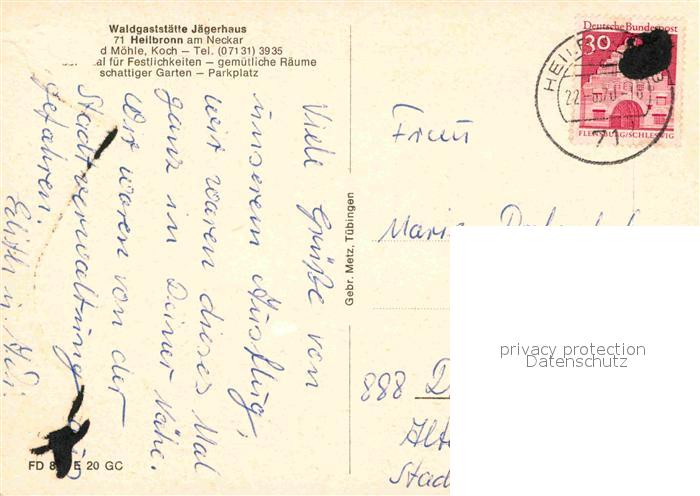 Waldgaststätte Jägerhaus
71 Heilbronn am Neckar
d Möhle, Koch – Tel. (07131) 3935
al für Festlichkeiten – gemütliche Räume
schattiger Garten – Parkplatz
Viele Grüße von
unserem Ausflug,
wir waren dieses Mal
ganz in Deiner Nähe.
Wir waren von der
Stadtverwaltung
gefahren
FD 8 E 20 GC
Gebr. Metz, Tübingen
Deutsche Bundespost
30
FLENSBURG/SCHLESWIG
71
Frau
Maria
888 D
Alte
Stad
privacy protection
Datenschutz